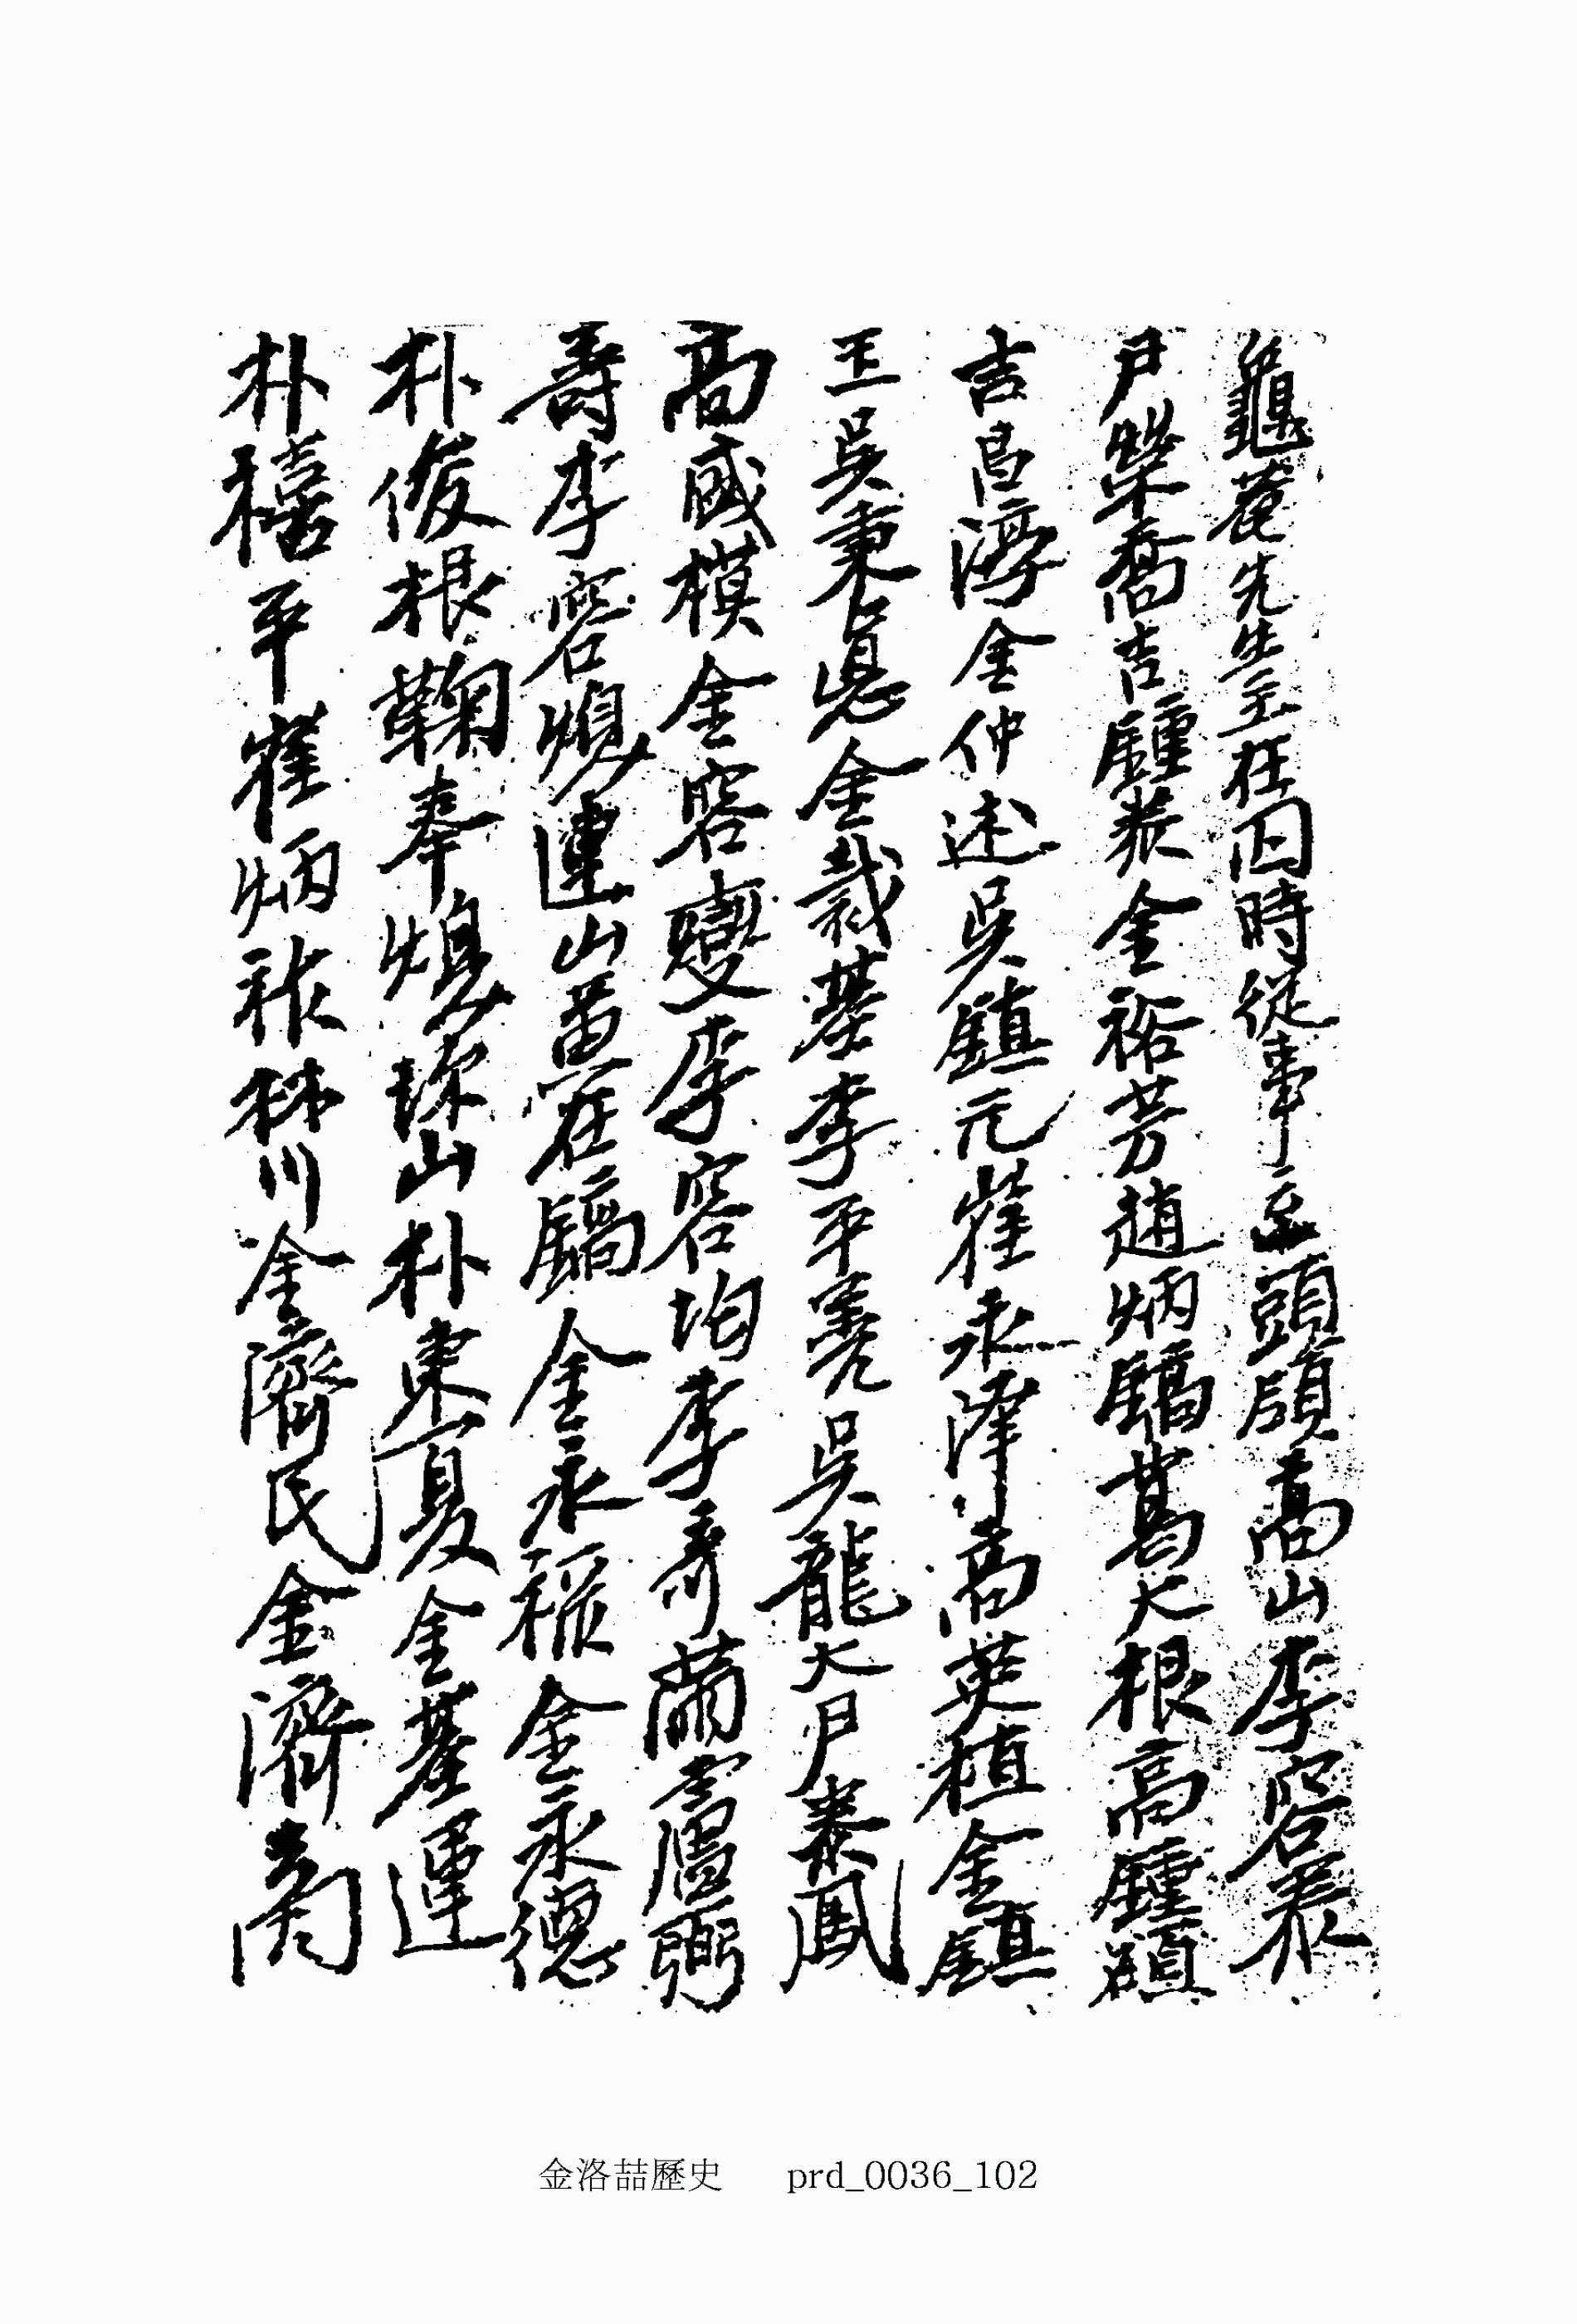 龜菴先生主在囚時從事至頭領高山李容泰
尹榮喬吉鍾裴金裕芳趙炳鎬葛大根高鍾碩
吉昌淳金仲述吳鎭元崔永澤高英植金鎭
王吳秉悳金裁基李平善吳龍大尹泰鳳
高成模金容燮李容均李壽蘭盧弼
壽李容熀連山黃在鎬金永稷金永德
朴俊根鞠奉煥珍山朴東夏金基運
朴禧平崔炳祚林川金濟民金濟
金洛喆歷史 prd_0036_102